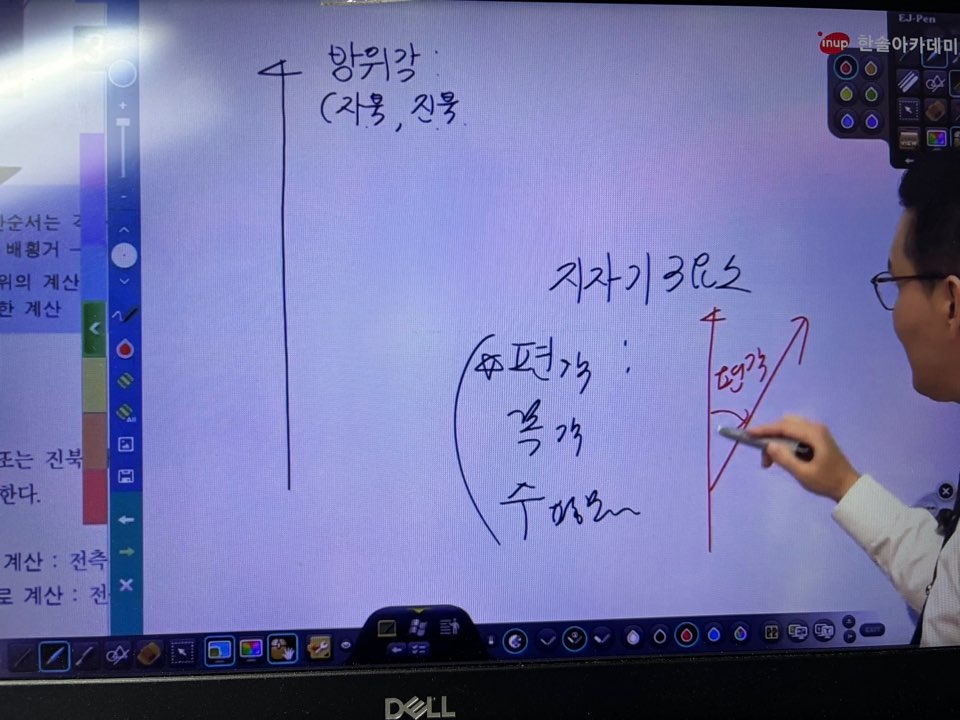 EJ-Pen
inup 한솔아카데미
방위각 :
(자북, 진북
지자기 3요소
☆편각 :
편각
복각
수평분
산순서는 각
배횡거 →
위의 계산
한 계산
또는 진북
한다.
계산 : 전측
로 계산 : 전
VIEW
All
EXIT
DELL